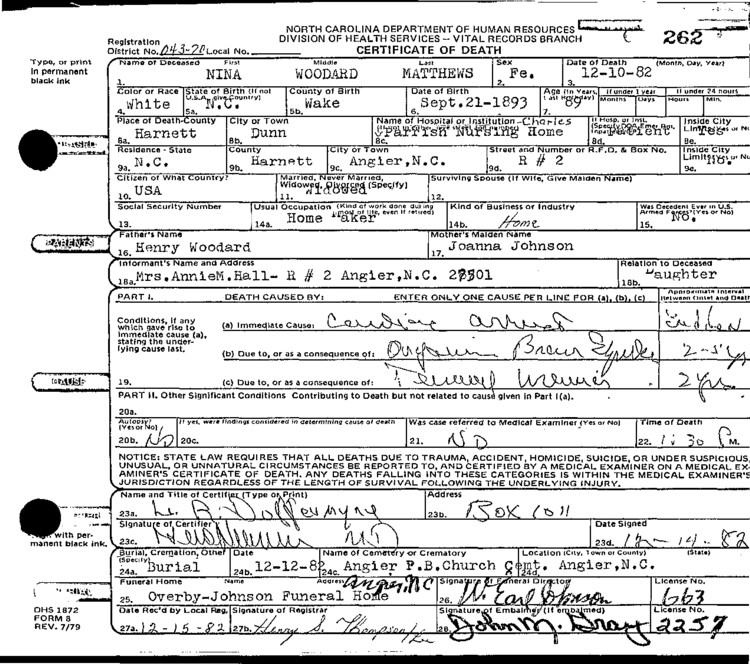 NORTH CAROLINA DEPARTMENT OF HUMAN RESOURCES
DIVISION OF HEALTH SERVICES — VITAL RECORDS BRANCH
CERTIFICATE OF DEATH
262
Registration
District No. 043-70 Local No.
Type, or print
in permanent
black ink
Name of Deceased First Middle Last Sex Date of Death (Month, Day, Year)
1. NINA WOODARD MATTHEWS 2. Fe. 3. 12-10-82
Color or Race State of Birth (If not U.S.A. give Country) County of Birth Date of Birth Age (In Years, Last Birthday) If under 1 year If under 24 hours
Months Days Hours Min.
4. White 5a. N.C. 5b. Wake 6. Sept.21-1893 7. 89
Place of Death-County City or Town Name of Hospital or Institution Charles Inside City
8a. Harnett 8b. Dunn 8c. Parrish Nursing Home 8d. 8e.
Residence - State County City or Town Street and Number or R.F.D. & Box No. Inside City
9a. N.C. 9b. Harnett 9c. Angier,N.C. 9d. R # 2 9e. No.
Citizen of What Country? Married, Never Married, Widowed, Divorced (Specify) Surviving Spouse (If Wife, Give Maiden Name)
10. USA 11. Widowed 12.
Social Security Number Usual Occupation (Kind of work done during most of life, even if retired) Kind of Business or Industry Was Decedent Ever in U.S. Armed Forces? (Yes or No)
13. 14a. Home 14b. Home 15. NO.
PARENTS
Father's Name Mother's Maiden Name
16. Henry Woodard 17. Joanna Johnson
Informant's Name and Address Relation to Deceased
18a. Mrs.AnnieM.Hall- R # 2 Angier,N.C. 18b. Daughter
PART I. DEATH CAUSED BY: ENTER ONLY ONE CAUSE PER LINE FOR (a), (b), (c) Approximate Interval Between Onset and Death
Conditions, if any
which gave rise to
immediate cause (a),
stating the under-
lying cause last.
(a) Immediate Cause: Cardiac arrest Sudden
(b) Due to, or as a consequence of: Organic Brain
CAUSE
19. (c) Due to, or as a consequence of: 2 yrs
PART II. Other Significant Conditions Contributing to Death but not related to cause given in Part I(a).
20a.
Autopsy? (Yes or No) If yes, were findings considered in determining cause of death Was case referred to Medical Examiner (Yes or No) Time of Death
20b. NO 20c. 21. NO 22. 1:30 P M.
NOTICE: STATE LAW REQUIRES THAT ALL DEATHS DUE TO TRAUMA, ACCIDENT, HOMICIDE, SUICIDE, OR UNDER SUSPICIOUS,
UNUSUAL, OR UNNATURAL CIRCUMSTANCES BE REPORTED TO, AND CERTIFIED BY A MEDICAL EXAMINER ON A MEDICAL EX-
AMINER'S CERTIFICATE OF DEATH. ANY DEATHS FALLING INTO THESE CATEGORIES IS WITHIN THE MEDICAL EXAMINER'S
JURISDICTION REGARDLESS OF THE LENGTH OF SURVIVAL FOLLOWING THE UNDERLYING INJURY.
Name and Title of Certifier (Type or Print) Address
23a. 23b. Box 1011
Signature of Certifier Date Signed
23c. MD 23d. 12-14-82
with per-
manent black ink.
Burial, Cremation, Other (Specify) Date Name of Cemetery or Crematory Location (City, Town or County) (State)
24a. Burial 24b. 12-12-82 24c. Angier P.B.Church Cemt. 24d. Angier,N.C.
Funeral Home Name Address Angier, NC Signature of Funeral Director License No.
25. Overby-Johnson Funeral Home 26. W. Earl Johnson 663
DHS 1872
FORM 8
REV. 7/79
Date Rec'd by Local Reg. Signature of Registrar Signature of Embalmer (If embalmed) License No.
27a. 12-15-82 27b. Henry S. Thompson 28. John M. Gray 2257